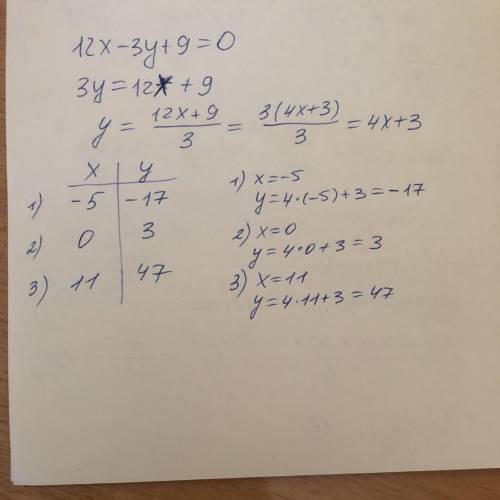 12x-3y+9=0
3y=12x+9
y = \frac{12x+9}{3} = \frac{3(4x+3)}{3} = 4x+3
x y
1) -5 -17
2) 0 3
3) 11 47
1) x=-5
y=4·(-5)+3=-17
2) x=0
y=4·0+3=3
3) x=11
y=4·11+3=47